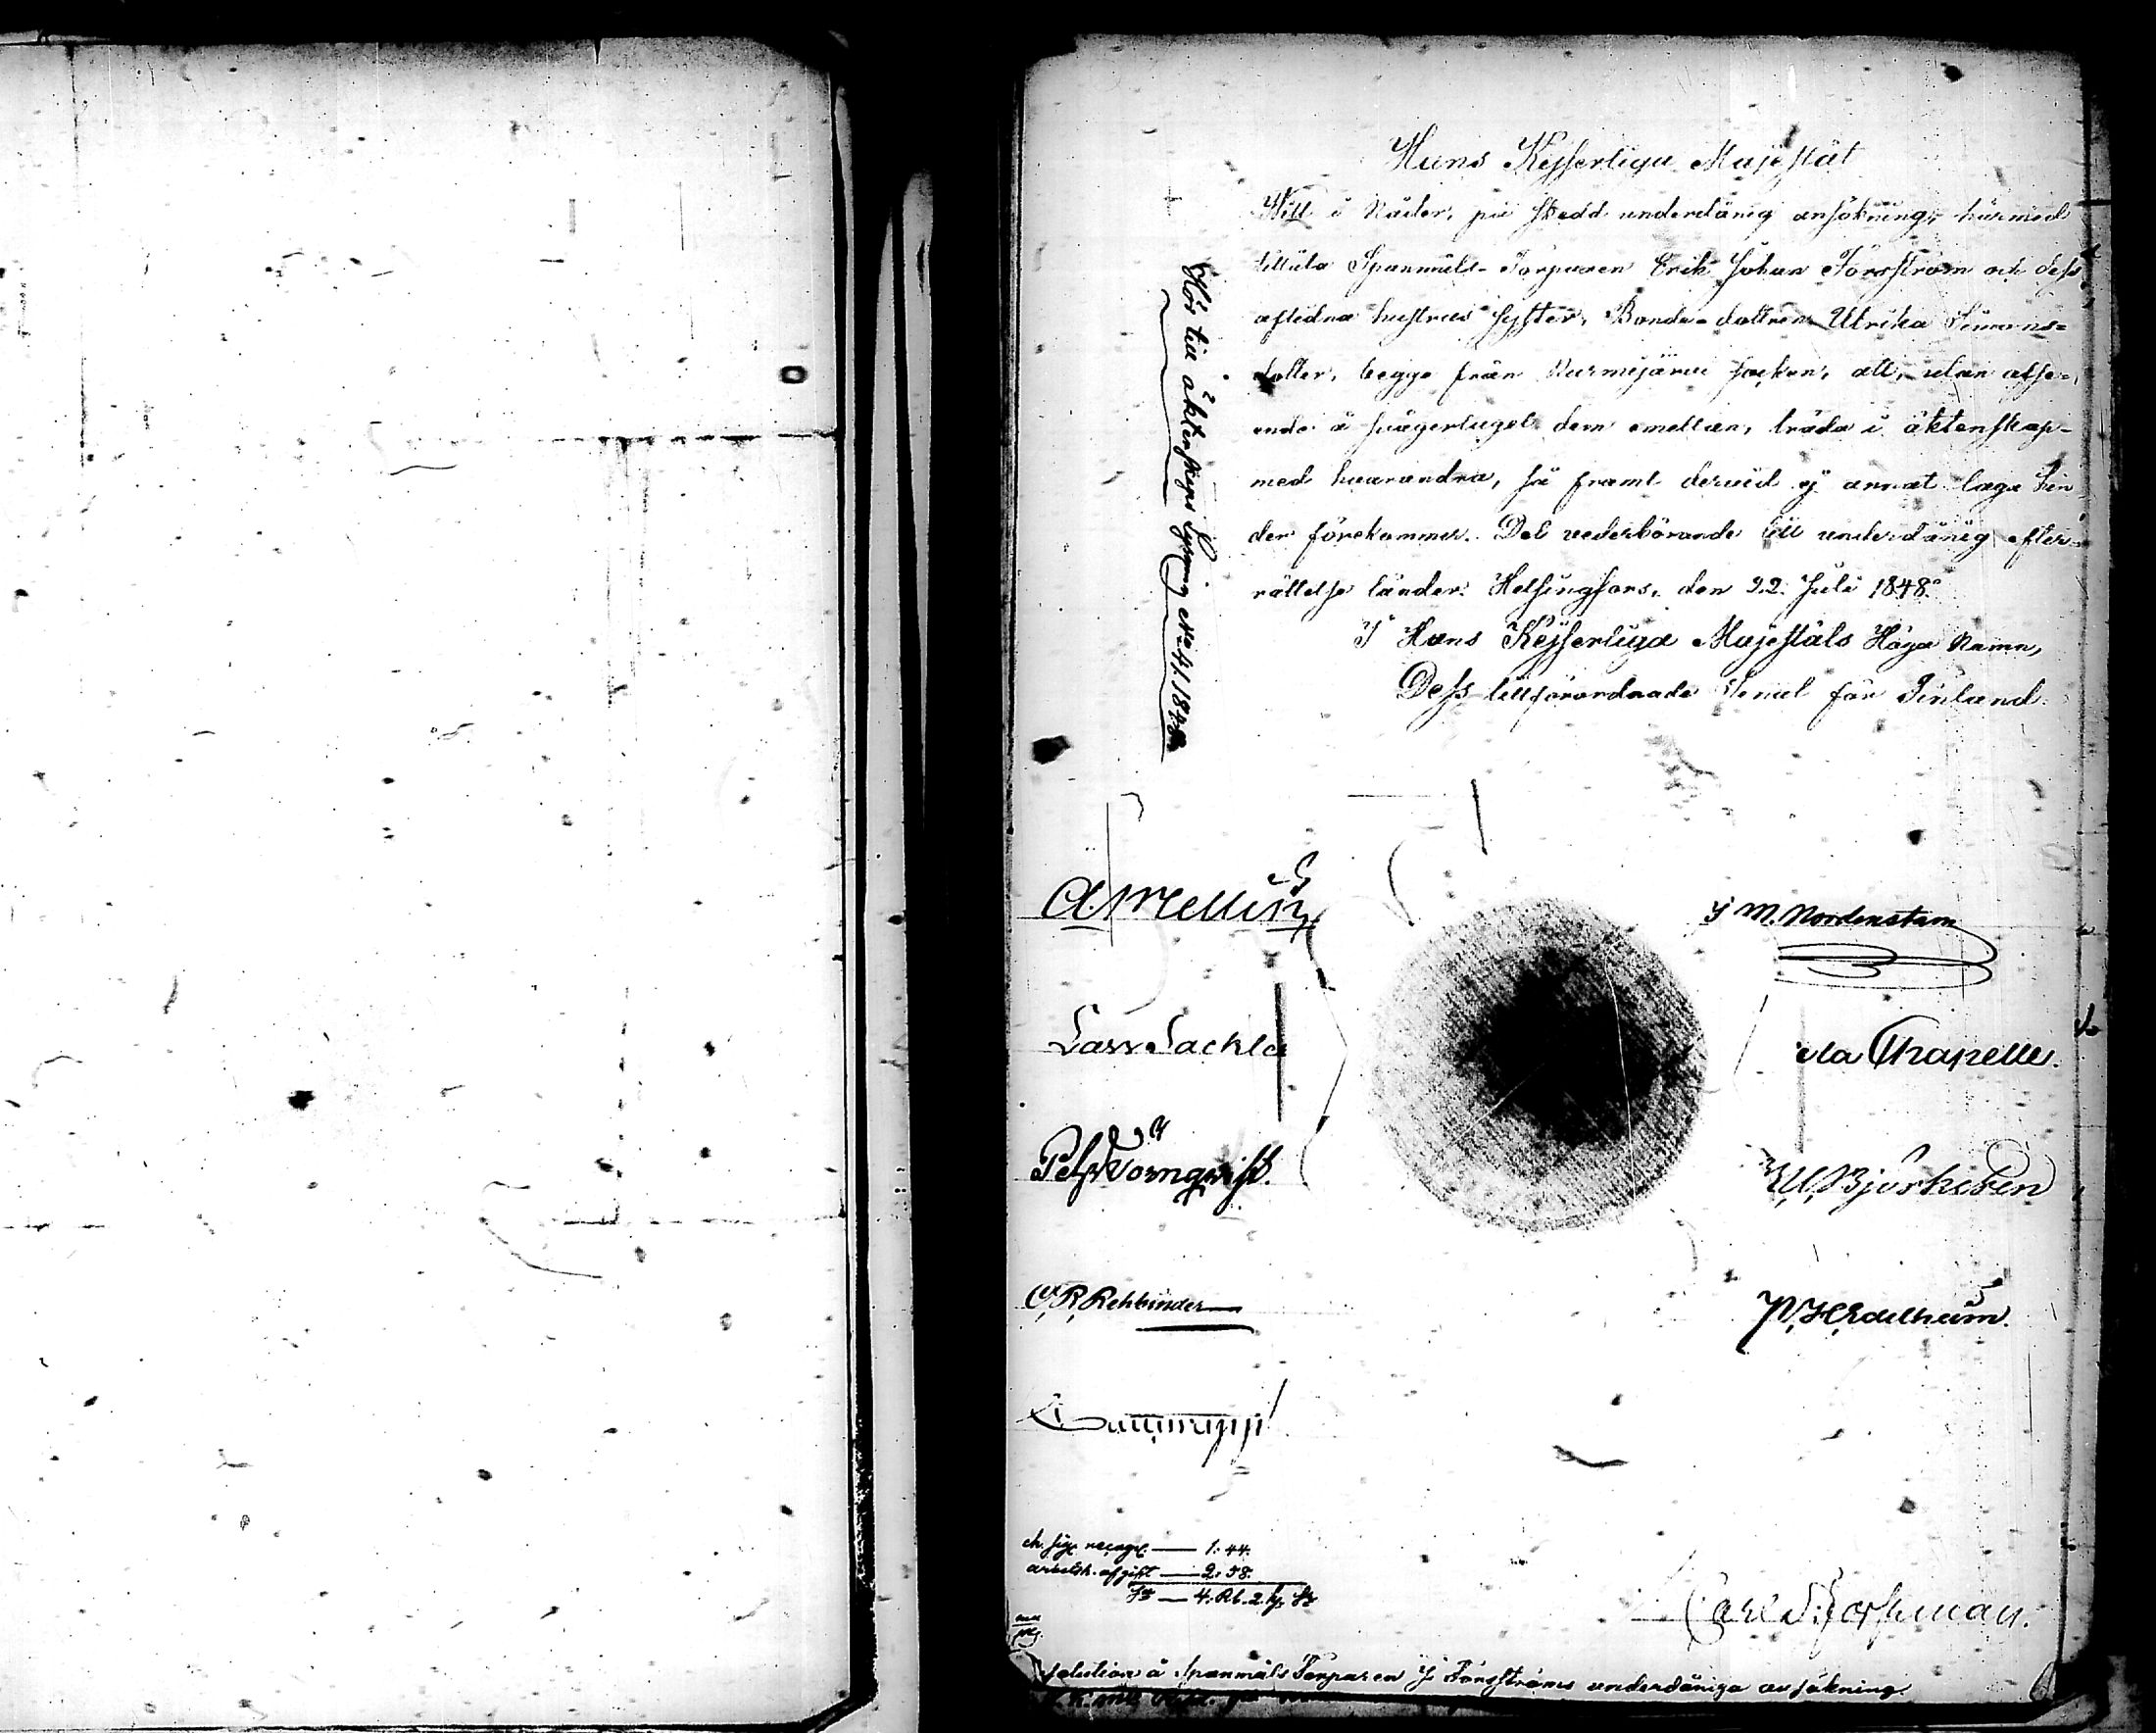 Hans Kejserliga Majestät
Will i Nåder, på skedd underdånig ansökning, härmed
tillåta Spanmåls-Torparen Erik Johan Forsström och dess
aflidna hustrus syster, Bonde-dottren Ulrika Simons-
dotter, begge från Nurmijärvi socken, att, utan afse-
ende å svågerlaget dem emellan, träda i äktenskap
med hvarandra, så framt dervid ej annat laga hin
der förekommer. Det vederbörande till underdånig efter-
rättelse länder. Helsingfors, den 22 Juli 1848.
I Hans Kejserliga Majestäts Höga Namn,
Dess tillförordnade Senat för Finland.
Hör till äktenskaps Lysning No 41. 1848.
A. Mellin
J M. Nordenstam
Lars Sackle
de la Chapelle.
Pehr Törnqvist.
Björksten
C. R. Rehbinder
P. H. Edelheim.
ch. sig. recogn. — 1:44.
arbetsh. afgift — 2:58.
Sr — 4. Rb. 2 k. Sr
Carl D. Forsman.
solution å Spanmåls Torparen J. Forsströms underdåniga ansökning.